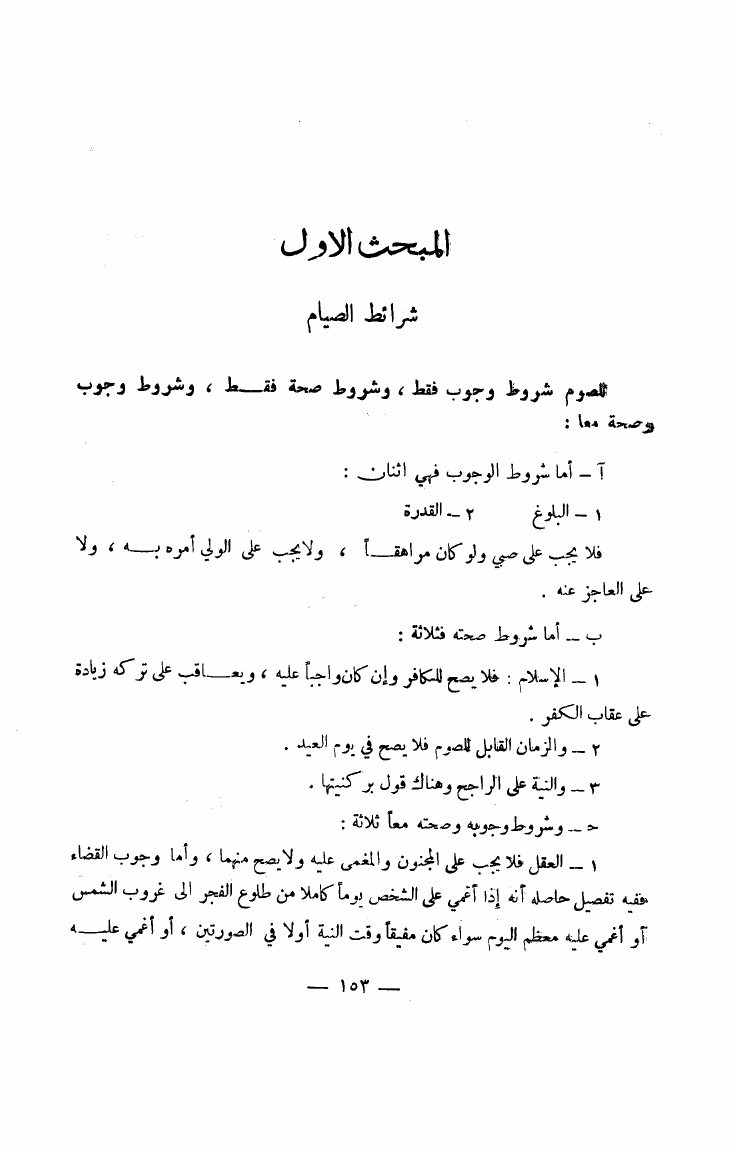 المبحث الاول
شرائط الصيام
للصوم شروط وجوب فقط ، وشروط صحة فقـــط ، وشروط وجوب
وصحة معا :
آ – أما شروط الوجوب فهي اثنان :
١ – البلوغ ٢ – القدرة
فلا يجب على صبي ولو كان مراهقـــاً ، ولايجب على الولي أمره بـــه ، ولا
على العاجز عنه .
ب – أما شروط صحته فثلاثة :
١ – الإسلام : فلا يصح للكافر وإن كان واجباً عليه ، ويعـــاقب على تركه زيادة
على عقاب الكفر .
٢ – والزمان القابل للصوم فلا يصح في يوم العيد .
٣ – والنية على الراجح وهناك قول بركنيتها .
ح – وشروط وجوبه وصحته معاً ثلاثة :
١ – العقل فلا يجب على المجنون والمغمى عليه ولا يصح منهما ، وأما وجوب القضاء
ففيه تفصيل حاصله أنه إذا أغمي على الشخص يوماً كاملا من طلوع الفجر الى غروب الشمس
أو أغمي عليه معظم اليوم سواء كان مفيقاً وقت النية أولا في الصورتين ، أو أغمي عليـــه
– ١٥٣ –